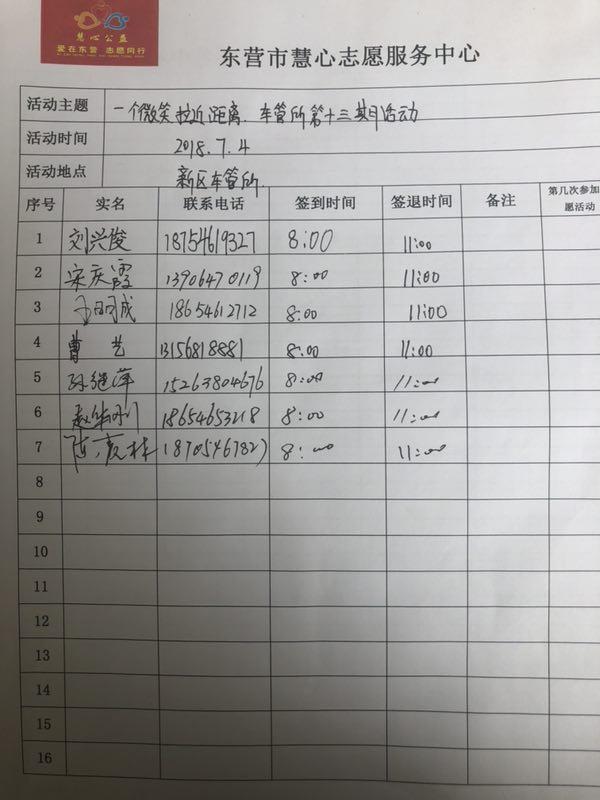 慧心公益
爱在东营 志愿同行
东营市慧心志愿服务中心
活动主题 一个微笑拉近距离. 车管所第十三期活动
活动时间 2018.7.4
活动地点 新区车管所.
序号 实名 联系电话 签到时间 签退时间 备注 第几次参加 愿活动
1 刘兴俊 18754619327 8:00 11:00
2 宋庆霞 13906470119 8:00 11:00
3 18654612712 8:00 11:00
4 曹艺 13156818881 8:00 11:00
5 孙继萍 15263804676 8:00 11:00
6 18654653218 8:00 11:00
7 8:00 11:00
8
9
10
11
12
13
14
15
16